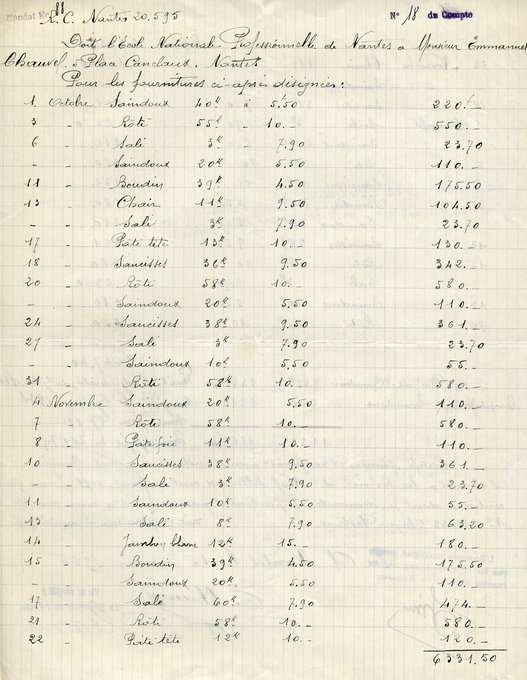 Mandat N° 88
R.C. Nantes 20.595
N° 18 du Compte
Doit l'École National Professionnelle de Nantes à Monsieur Emmanuel
Chauvel, 5 Place Canclaux. Nantes
Pour les fournitures ci-après désignées:
1 Octobre Saindoux 40k à 5.50 220.-
3 - Rôti 55k - 10.- 550.-
6 - Salé 3k - 7.90 23.70
- Saindoux 20k - 5.50 110.-
11 - Boudin 39k - 4.50 175.50
13 - Chair 11k - 9.50 104.50
- Salé 3k - 7.90 23.70
17 - Pâté tête 13k - 10.- 130.-
18 - Saucisses 36k - 9.50 342.-
20 - Rôti 58k - 10.- 580.-
- Saindoux 20k - 5.50 110.-
24 - Saucisses 38k - 9.50 361.-
27 - Salé 3k - 7.90 23.70
- Saindoux 10k - 5.50 55.-
31 - Rôti 58k - 10.- 580.-
4 Novembre Saindoux 20k - 5.50 110.-
7 - Rôti 58k - 10.- 580.-
8 - Pâté foie 11k - 10.- 110.-
10 - Saucisses 38k - 9.50 361.-
- Salé 3k - 7.90 23.70
11 - Saindoux 10k - 5.50 55.-
13 - Salé 8k - 7.90 63.20
14 - Jambon blanc 12k - 15.- 180.-
15 - Boudin 39k - 4.50 175.50
- Saindoux 20k - 5.50 110.-
17 - Salé 60k - 7.90 474.-
21 - Rôti 58k - 10.- 580.-
22 - Pâté tête 12k - 10.- 120.-
6331.50